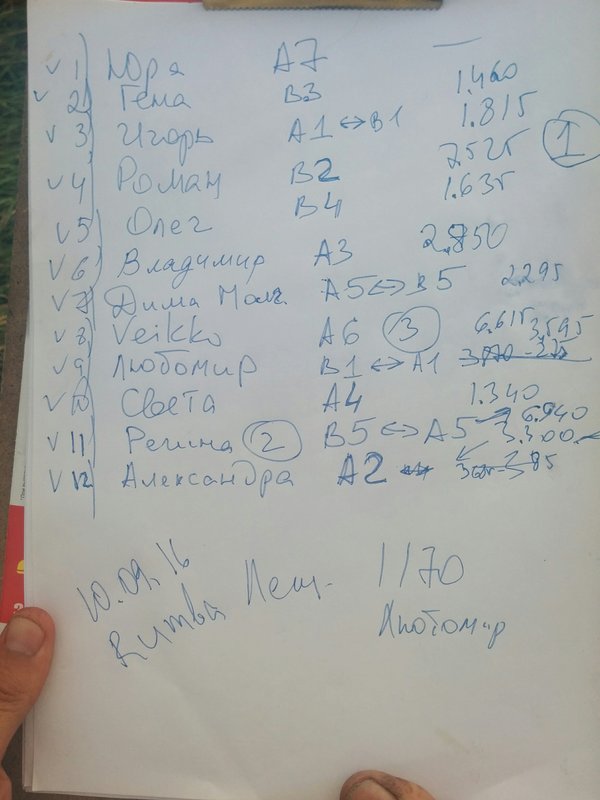 V 1) Юра A7 —
V 2) Гема B3 1.460
V 3) Игорь A1 ↔ B1 1.815
V 4) Роман B2 7.525 ①
V 5) Олег B4 1.635
V 6) Владимир A3 2.850
V 7) Дима Молч. A5 ↔ B5 2.295
V 8) Veikko A6 ③ 6.615
V 9) Любомир B1 ↔ A1 3.595
V 10) Света A4 1.340
V 11) Регина ② B5 ↔ A5 6.940
V 12) Александра A2 3.300
10.09.16
Лещ. 1170
Любомир